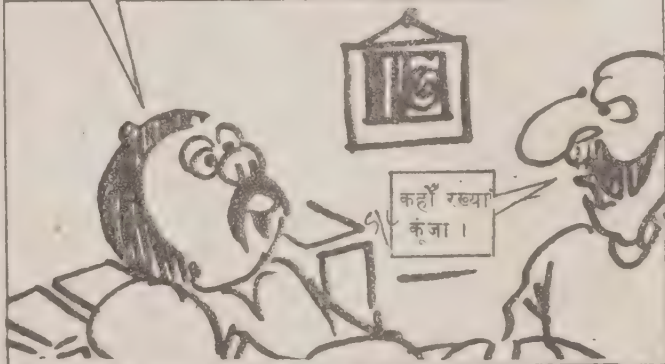 कहाँ रख्या
कूंजा ।